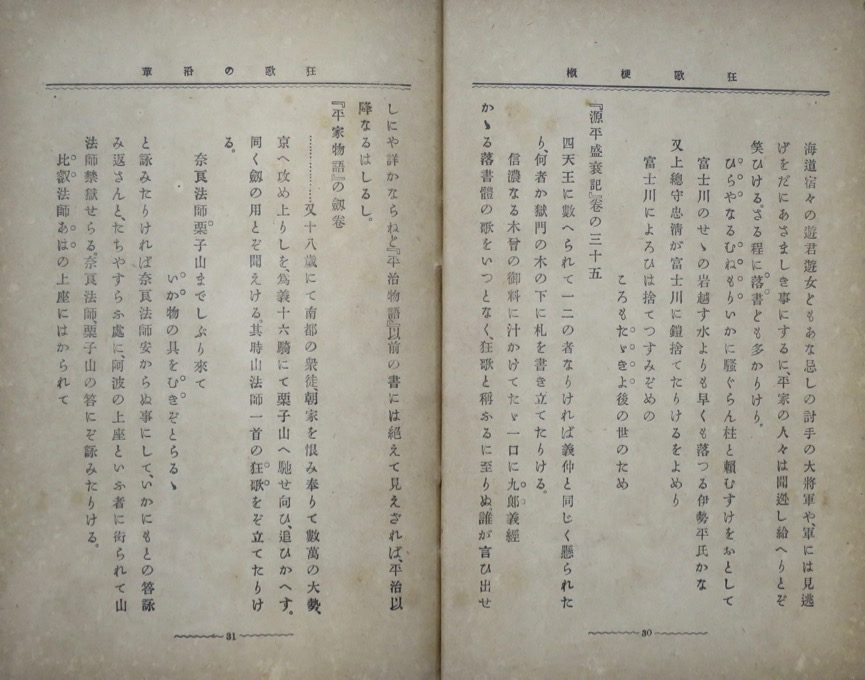 狂歌梗概
海道宿々の遊君遊女ともあな忌しの討手の大將軍や、軍には見逃
げをだにあさましき事にするに、平家の人々は聞迯し給へりとぞ
笑ひける。さる程に落書とも多かりけり。
ひらやなるむねもりいかに騷ぐらん柱と頼むすけをおとして
富士川のせゞの岩越す水よりも早くも落つる伊勢平氏かな
又上總守忠淸が富士川に鎧捨てたりけるをよめり
富士川によろひは捨てつすみぞめの
ころもたゞきよ後の世のため
『源平盛衰記』卷の三十五
四天王に數へられて一二の者なりければ義仲と同じく懸られた
り、何者か獄門の木の下に札を書き立てたりける。
信濃なる木曾の御料に汁かけてたゞ一口に九郎義經
かゝる落書體の歌をいつとなく、狂歌と稱ふるに至りぬ、誰が言ひ出せ
30
狂歌の沿革
しにや詳かならねど『平治物語』以前の書には絕えて見えされば、平治以
降なるはしるし。
『平家物語』の劔卷
…………又十八歲にて南都の衆徒、朝家を恨み奉りて數萬の大勢、
京へ攻め上りしを、爲義十六騎にて栗子山へ馳せ向ひ、追ひかへす。
同く劔の用とぞ聞えける。其時山法師一首の狂歌をぞ立てたりけ
る。
奈良法師栗子山までしぶり來て
いか物の具をむきぞとらるゝ
と詠みたりければ奈良法師安からぬ事にして、いかにもとの答詠
み返さんと、たちやすらふ處に、阿波の上座といふ者に衒られて山
法師禁獄せらる。奈良法師、栗子山の答にぞ詠みたりける。
比叡法師あはの上座にはかられて
31